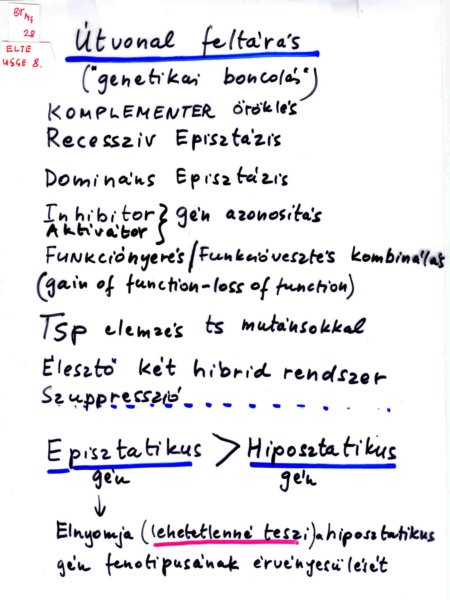 BT MG
28
ELTE
USGE 8.
Útvonal feltárás
("genetikai boncolás")
KOMPLEMENTER öröklés
Recessziv Episztázis
Domináns Episztázis
Inhibitor } gén azonosítás
Aktivátor
Funkciónyerés/Funkcióvesztés kombinálás
(gain of function-loss of function)
Tsp elemzés ts mutánsokkal
Élesztő két hibrid rendszer
Szuppresszió
Episztatikus > Hiposztatikus
gén gén
↓
Elnyomja (lehetetlenné teszi) a hiposztatikus
gén fenotipusának érvényesülését